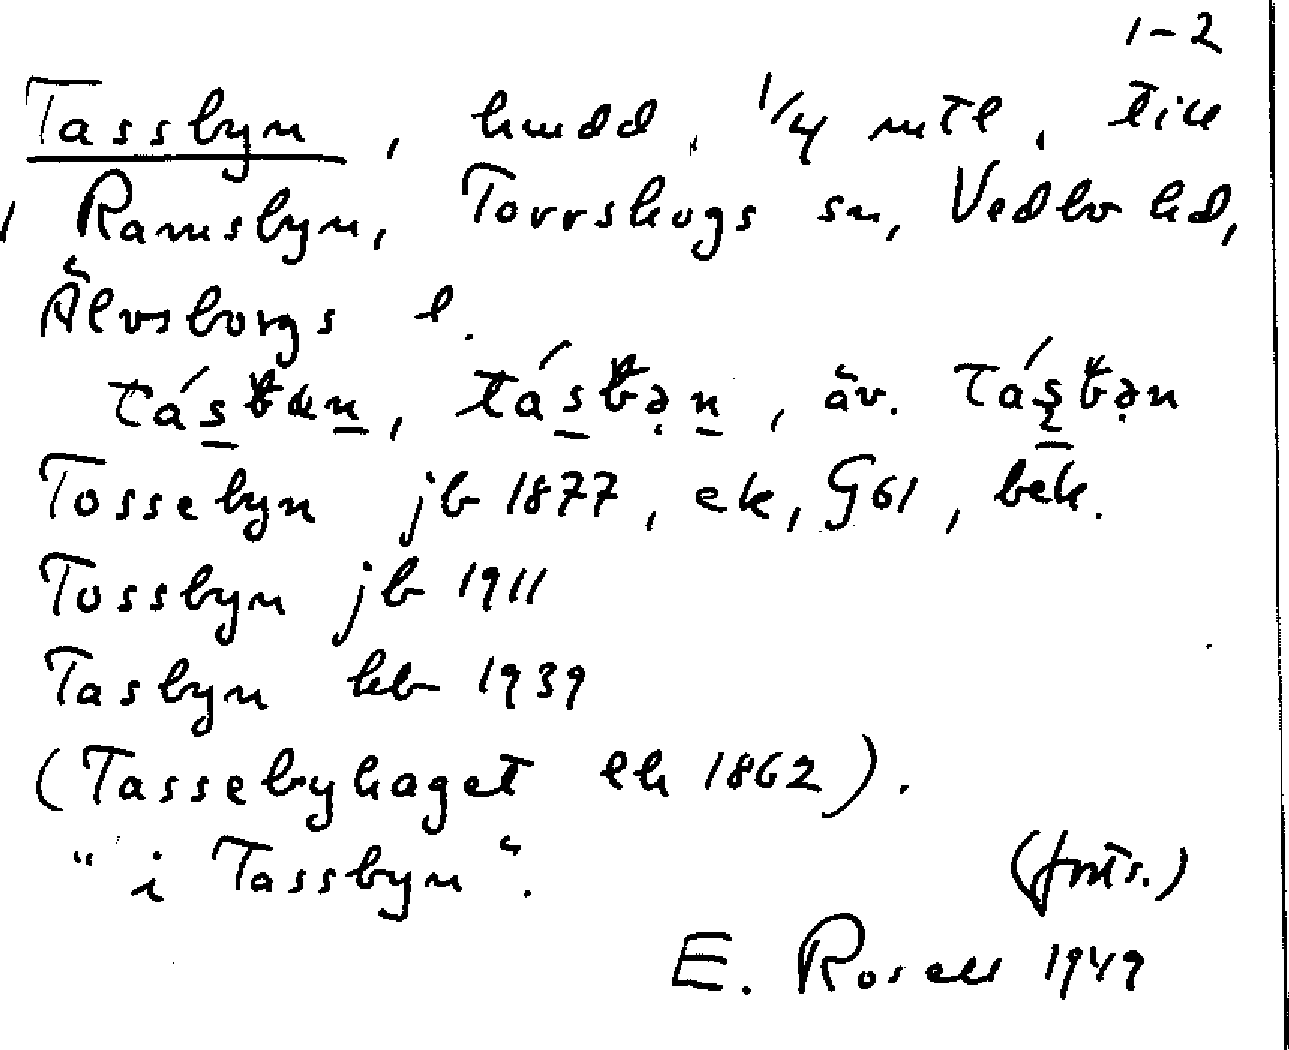 1-2
Tassbyn, hmdd, 1/4 mtl, till
/ Ramsbyn, Torrskogs sn, Vedbo hd,
Älvsborgs l.
tás̱bæṉ, tás̱bə̣ṉ, äv. táṣ̱bə̣n
Tossebyn jb 1877, ek, G61, bek.
Tossbyn jb 1911
Tasbyn kb 1939
(Tassebyhaget lk 1862).
"i Tassbyn".
(forts.)
E. Rosell 1949